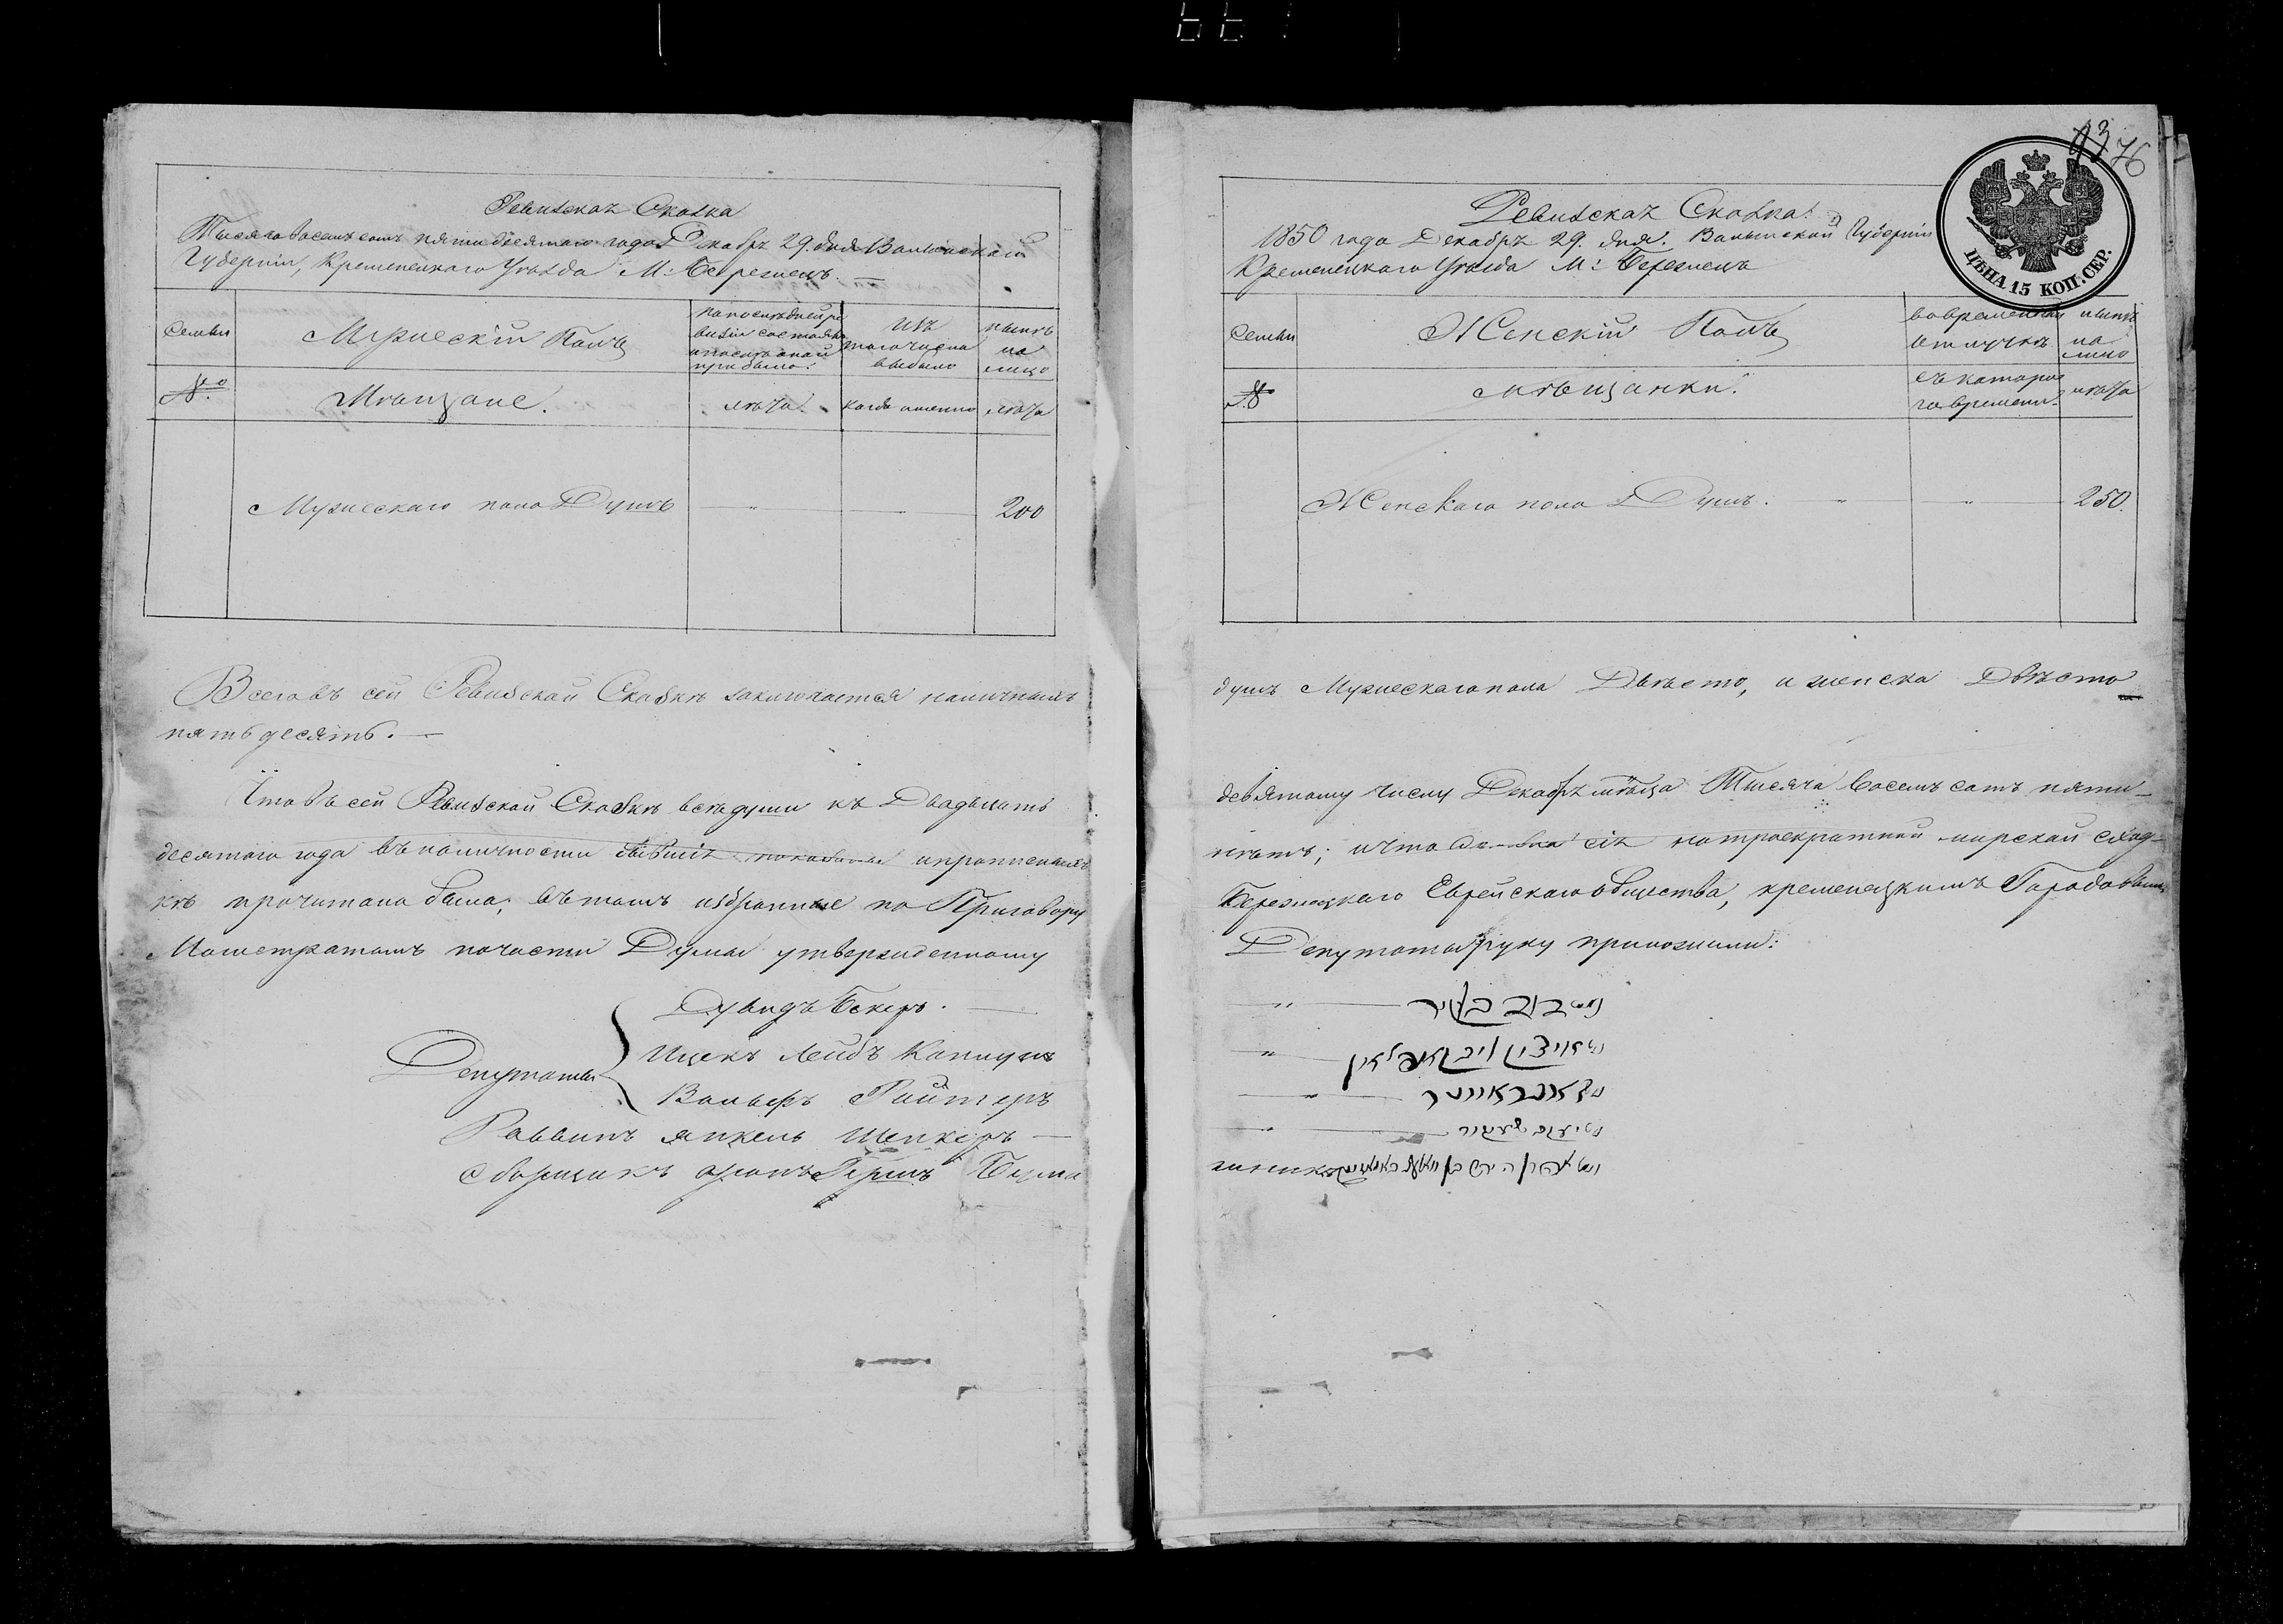 Ревизская Сказка
Тысяча восемь сотъ пятидесятаго года Декабря 29. дня Волынской
Губернiи, Кременецкаго Уѣзда М: Березнецъ.
Семьи
Мужескiй Полъ
по последней ре
визiи состояло
и после оной
прибыло.
изъ
того числа
выбыло
нынѣ
на
лицо
№
Мѣщане.
лѣта.
когда именно
лѣта
Мужескаго пола Душъ
200
Всего въ сей Ревизской Сказкѣ заключается наличныхъ
пятьдесятъ.
Что въ сей Ревизской Сказкѣ всѣ души къ Двадцать
десятаго года въ наличности бывшiя показаны и прописаны
кѣ прочитана была; въ томъ избранные по Приговору
Магистратомъ по части Думы утвержденному
Депутаты
Дувидъ Бекеръ.
Ицекъ Лейбъ
Вольфъ Ройтеръ
Раввинъ Янкель Шенкеръ
Сборщикъ Аронъ Гершъ
1376
Ревизская Сказка.
1850 года Декабря 29. дня. Волынской Губернiи
Кременецкаго Уѣзда М: Березнецъ
ЦѢНА 15 КОП. СЕР.
Семьи
Женскiй Полъ
во временной
отлучкѣ
нынѣ
на
лицо
№
Мѣщанки.
съ котора
го времени.
лѣта
Женскаго пола Душъ.
250.
душъ Мужескаго пола Двѣсто, и женска Двѣсто
девятому числу Декабря мѣсяца Тысяча восемь сотъ пяти-
нѣтъ; и что сiя на троекратной мирской сход-
Березнецкаго Еврейскаго общества, кременецкимъ Городовымъ
Депутаты руку приложили: